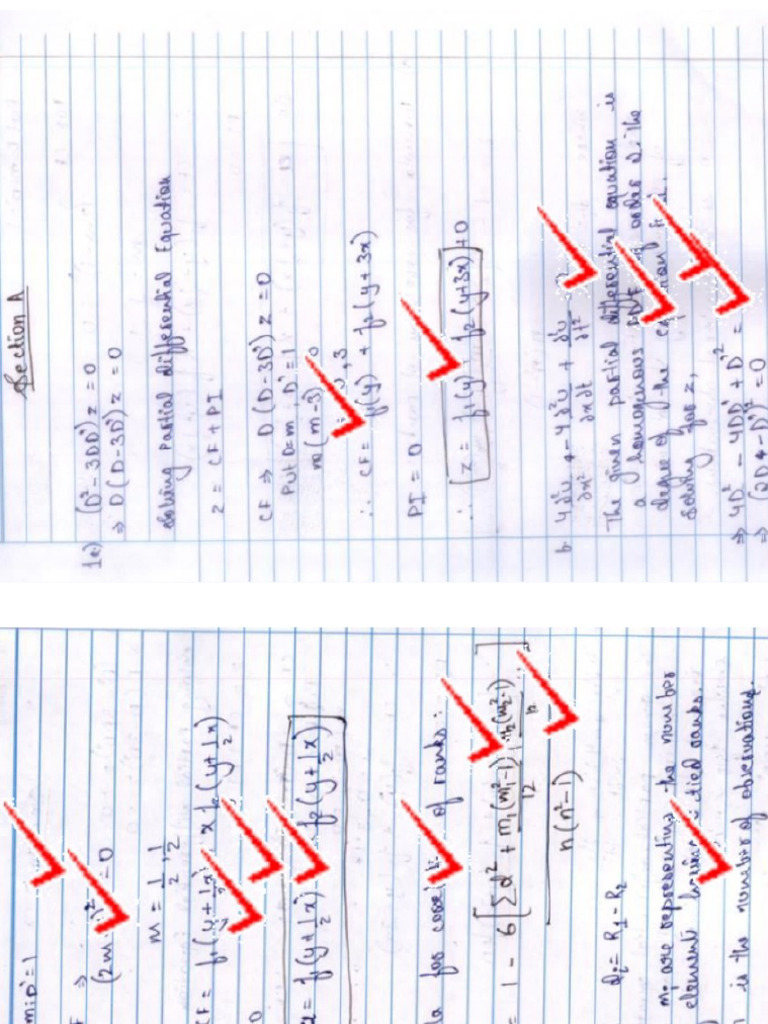 Section A
1a) (D² - 3DD')z = 0
⇒ D(D-3D')z = 0
Solving partial differential Equation
z = CF + PI
CF ⇒ D(D-3D')z = 0
Put D=m, D'=1
m(m-3) 0
, 3
∴ CF = f₁(y) + f₂(y+3x)
PI = 0
∴ z = f₁(y) f₂(y+3x)+0
b. 4∂²u/∂x² - 4∂²u/∂x∂t + ∂²u/∂t²
The given partial differential equation is
a homogenous of order 2. The
degree of the
Solving for z,
⇒ 4D² - 4DD' + D'² =
⇒ (2D - D')² = 0
m; D'=1
⇒
(2m )² = 0
m = 1/2, 1/2
CF = f₁(y+1/2x) x f₂(y+1/2x)
0
= f₁(y+1/2x) f₂(y+1/2x)
for of ranks:
= 1 - 6[Σd² + m₁(m₁²-1)/12 + m₂(m₂²-1)/12 ...]
n(n²-1)
dᵢ = R₁ - R₂
mᵢ are representing the number
element tied ranks.
is the number of observations.